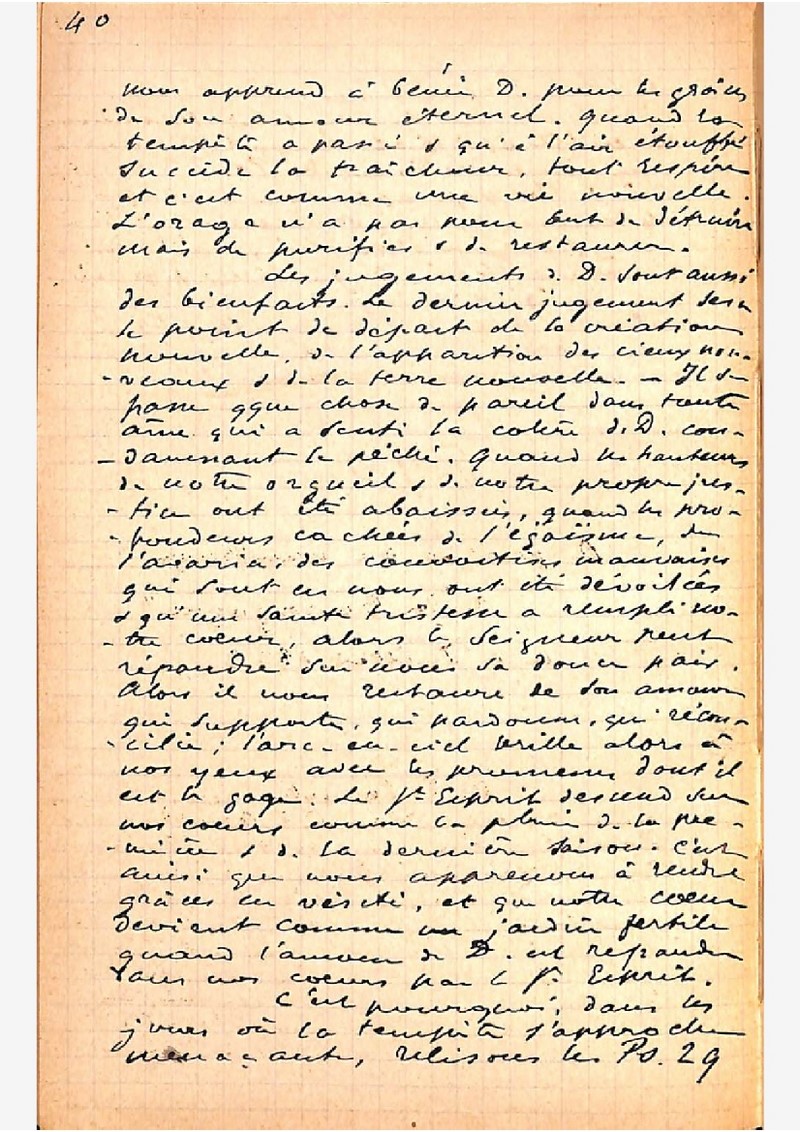 40
nous apprend à bénir D. pour les grâces
de son amour éternel. Quand la
tempête a passé & qu'à l'air étouffé
succède la fraîcheur, tout respire
et c'est comme une vie nouvelle.
L'orage n'a pas pour but de détruire
mais de purifier & de restaurer.
Les jugements d. D. sont aussi
des bienfaits. Le dernier jugement sera
le point de départ de la création
nouvelle, de l'apparition des cieux nou-
-veaux & d. la terre nouvelle. — Il se
passe qque chose de pareil dans toute
âme qui a senti la colère d. D. con-
-damnant le péché. Quand les hauteurs
de notre orgueil & de notre propre jus-
-tice ont été abaissées, quand les pro-
-fondeurs cachées de l'égoïsme, de
l'avarice, des convoitises mauvaises
qui sont en nous ont été dévoilées
& qu'une sainte tristesse a rempli no-
-tre coeur, alors le Seigneur peut
répandre sur nous sa douce paix.
Alors il nous restaure de son amour
qui supporte, qui pardonne, qui récon-
-cilie ; l'arc-en-ciel brille alors à
nos yeux avec les promesses dont il
est le gage. Le St Esprit descend sur
nos coeurs comme la pluie d. la pre-
-mière & d. la dernière saison. C'est
ainsi que nous apprenons à rendre
grâces en vérité, et que notre coeur
devient comme un jardin fertile
quand l'amour de D. est répandu
dans nos coeurs par le St. Esprit.
C'est pourquoi, dans les
jours où la tempête s'approche
menaçante, relisons les Ps. 29